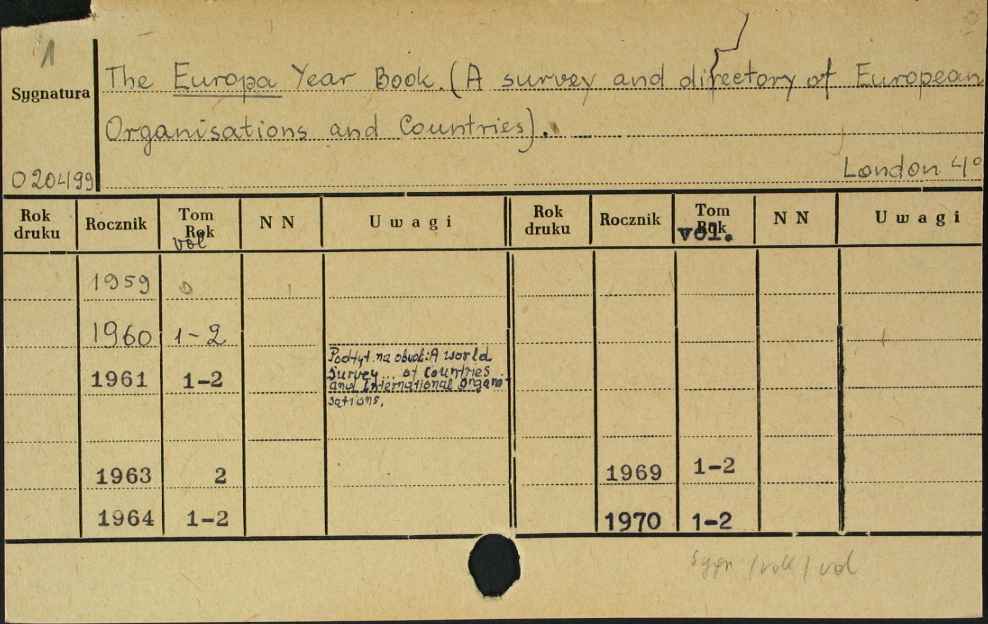 1
Sygnatura
The Europa Year Book. (A survey and directory of European
Organisations and Countries).
020499
London 4°
Rok druku Rocznik Tom Rok vol NN Uwagi Rok druku Rocznik Tom Rok vol. NN Uwagi
1959
1960 1-2
Podtyt. na okół: A world
1961 1-2
Survey... of Countries
and International Organi-
sations.
1963 2 1969 1-2
1964 1-2 1970 1-2
Sygn /rok/ vol